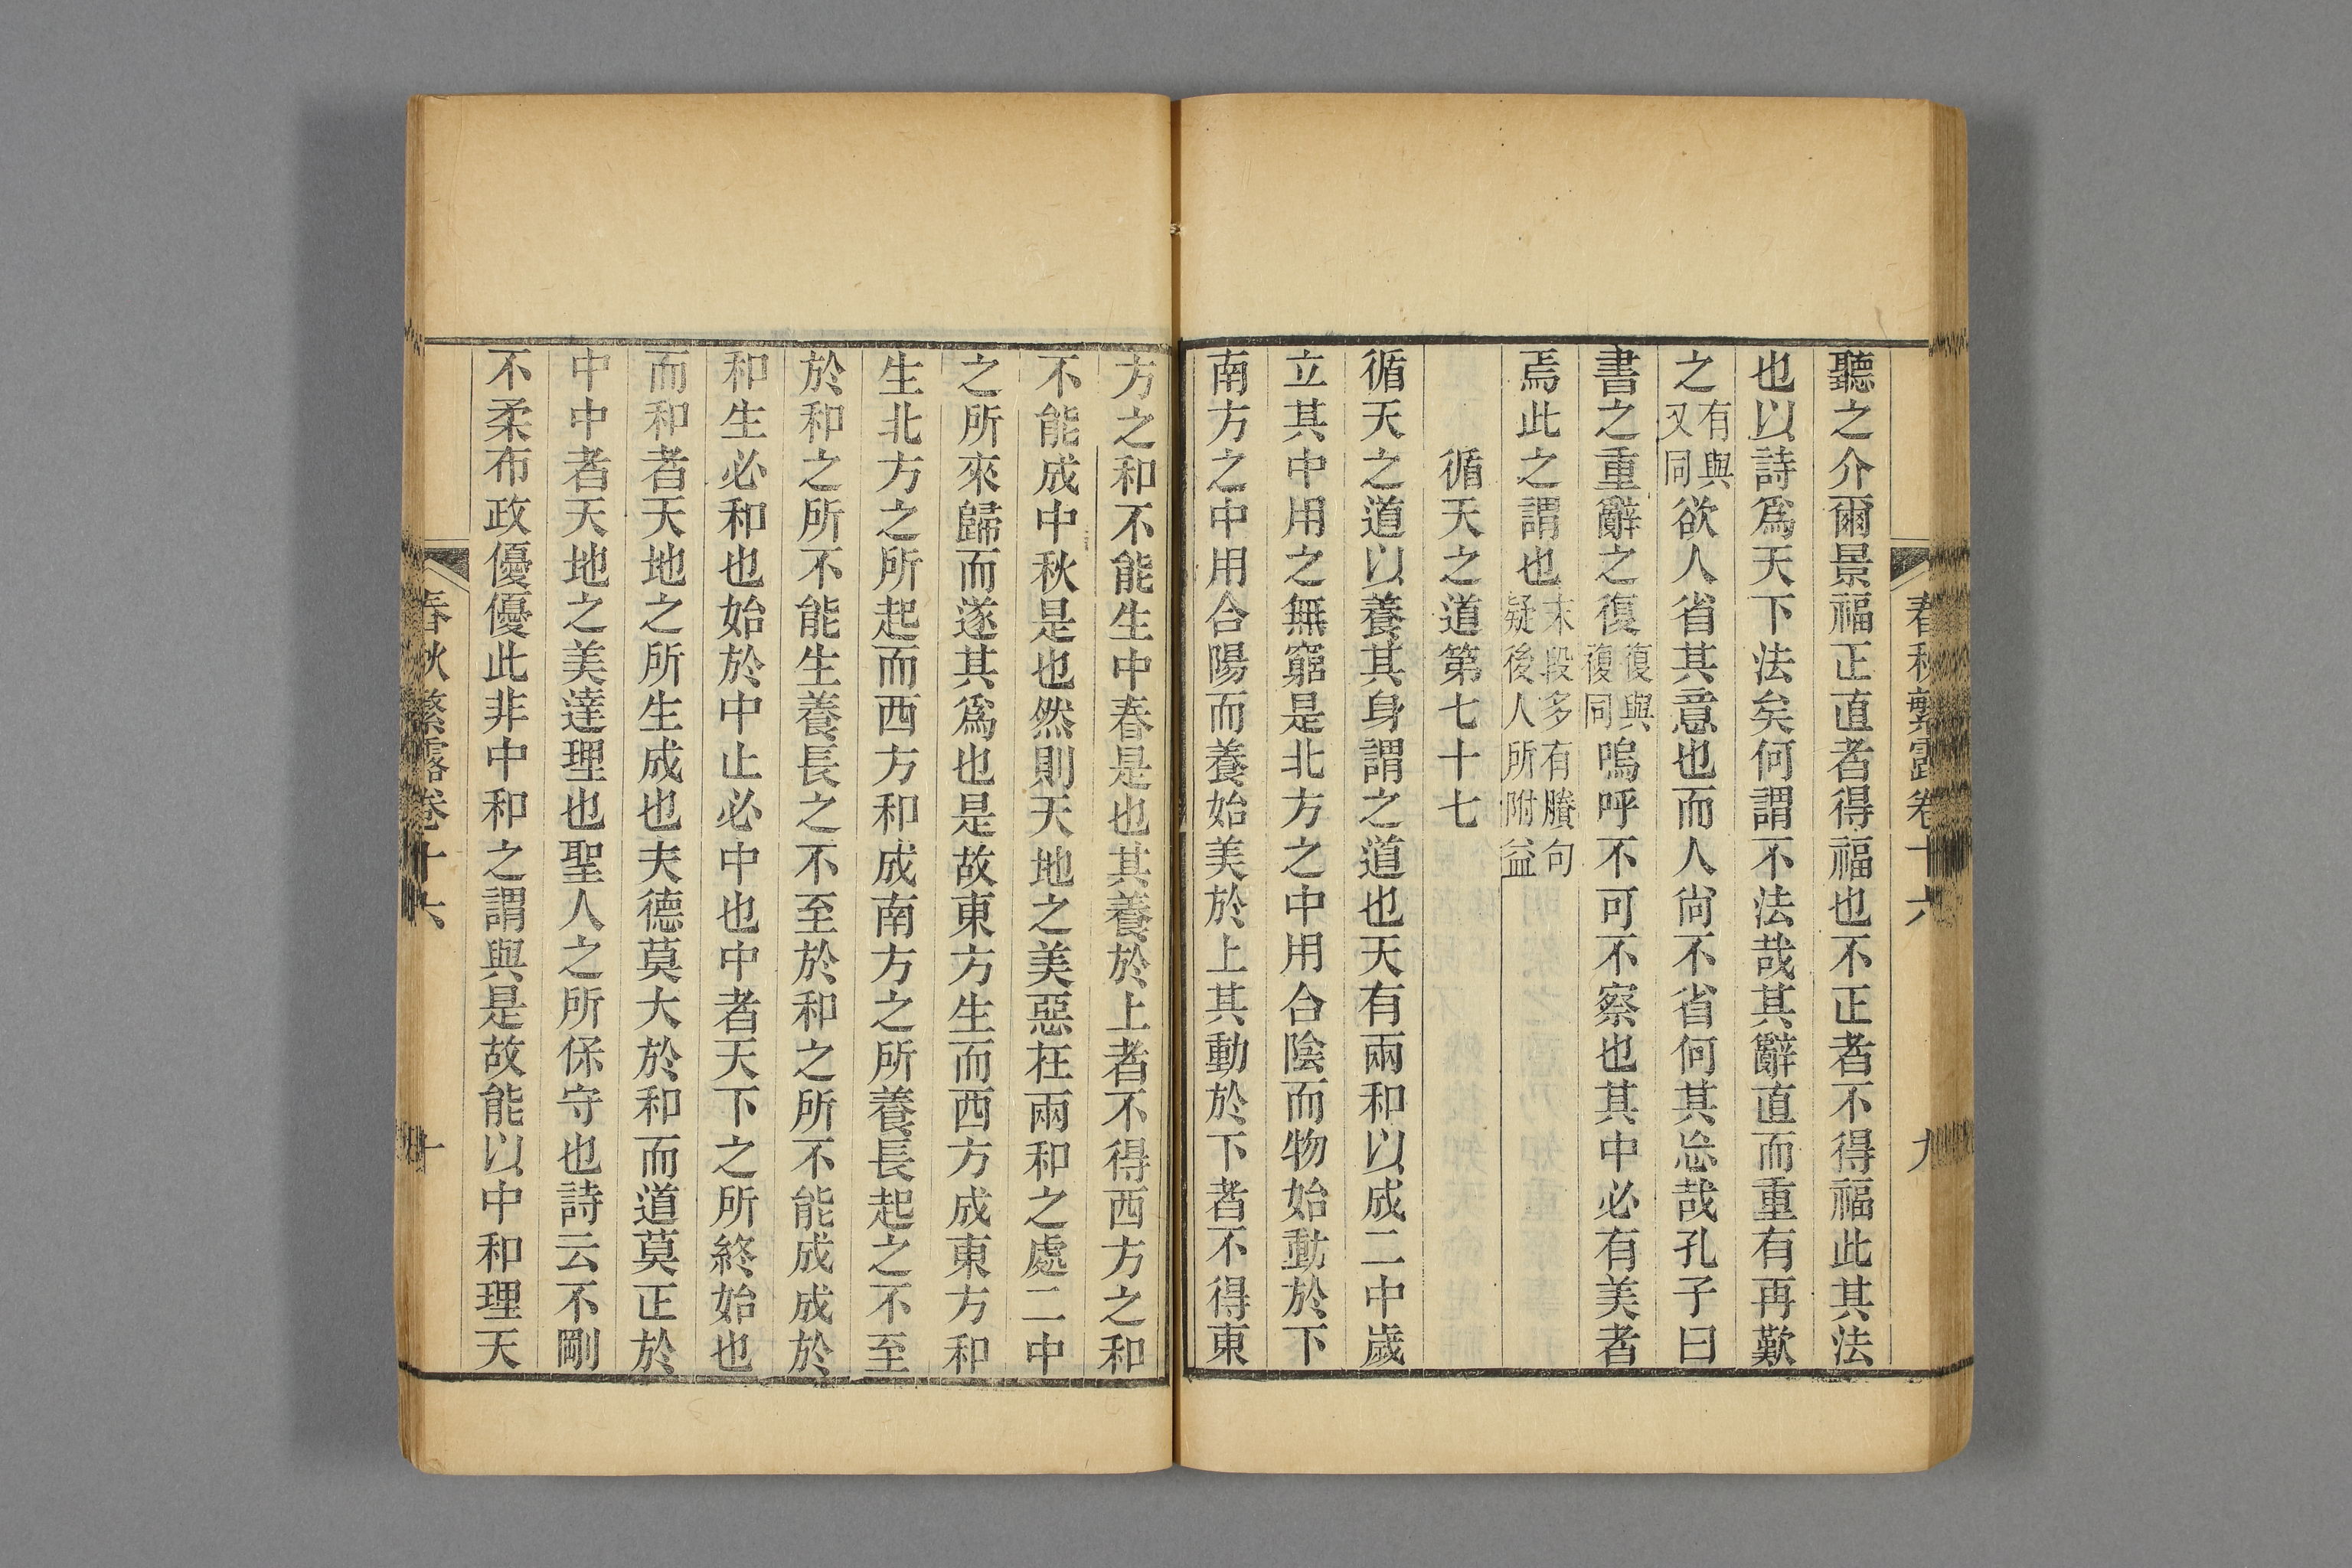 春秋繁露卷十六
九
聽之介爾景福正直者得福也不正者不得福此其法
也以詩爲天下法矣何謂不法哉其辭直而重有再歎
之有與又同欲人省其意也而人尙不省何其忘哉孔子曰
書之重辭之復復與複同嗚呼不可不察也其中必有美者
焉此之謂也末段多有賸句疑後人所附益
循天之道第七十七
循天之道以養其身謂之道也天有兩和以成二中歲
立其中用之無窮是北方之中用合陰而物始動於下
南方之中用合陽而養始美於上其動於下者不得東
方之和不能生中春是也其養於上者不得西方之和
不能成中秋是也然則天地之美惡在兩和之處二中
之所來歸而遂其爲也是故東方生而西方成東方和
生北方之所起而西方和成南方之所養長起之不至
於和之所不能生養長之不至於和之所不能成成於
和生必和也始於中止必中也中者天下之所終始也
而和者天地之所生成也夫德莫大於和而道莫正於
中中者天地之美達理也聖人之所保守也詩云不剛
不柔布政優優此非中和之謂與是故能以中和理天
春秋繁露卷十六
十